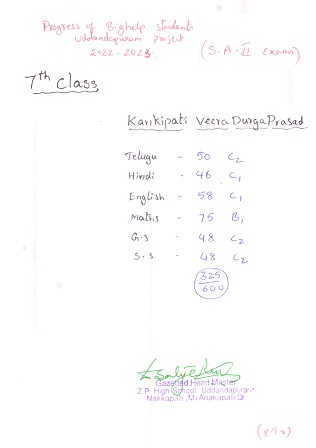 Progress of Bighelp students
Uddandapuram project
2022-2023.
(S.A-II Exams)
7th Class
Karikipati Veera Durga Prasad
Telugu - 50 C2
Hindi - 46 C1
English - 58 C1
Maths - 75 B1
G.S - 48 C2
S.S - 48 C2
325
600
Gazetted Head Master
Z.P. High School, Uddandapuram
Nakkapalli (M) Anakapalli Dt
(P.T.O)